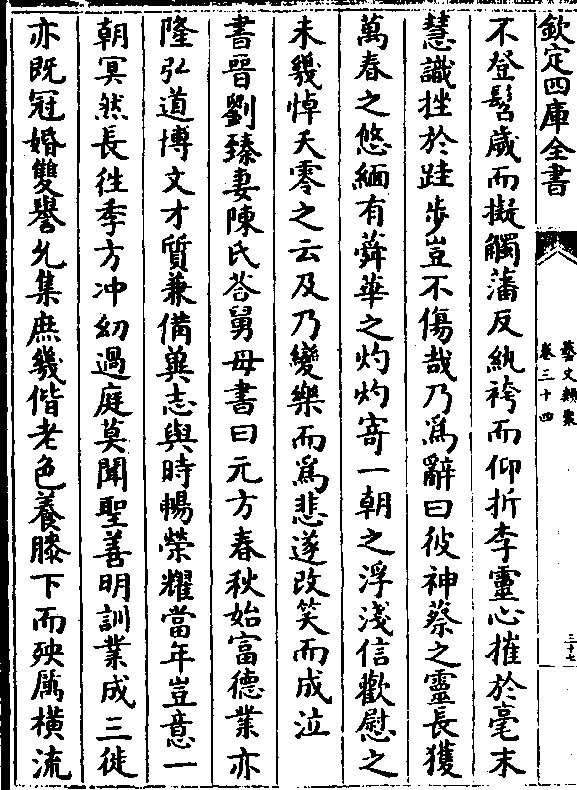 欽定四庫全書
藝文類聚
卷三十四
三十七
不登髫歲而擬觸藩反紈袴而仰折李靈心摧於毫末
慧識挫於跬步豈不傷哉乃為辭曰彼神蔡之靈長獲
萬春之悠緬有蕣華之灼灼寄一朝之浮淺信歡慰之
未幾悼天零之云及乃變樂而為悲遂改笑而成泣
書晉劉臻妻陳氏荅舅母書曰元方春秋始富德業亦
隆弘道博文才質兼備冀志與時暢榮耀當年豈意一
朝冥然長徃季方冲幼過庭莫聞聖善明訓業成三徙
亦既冠婚雙譽允集庶幾偕老色養膝下而殃厲橫流